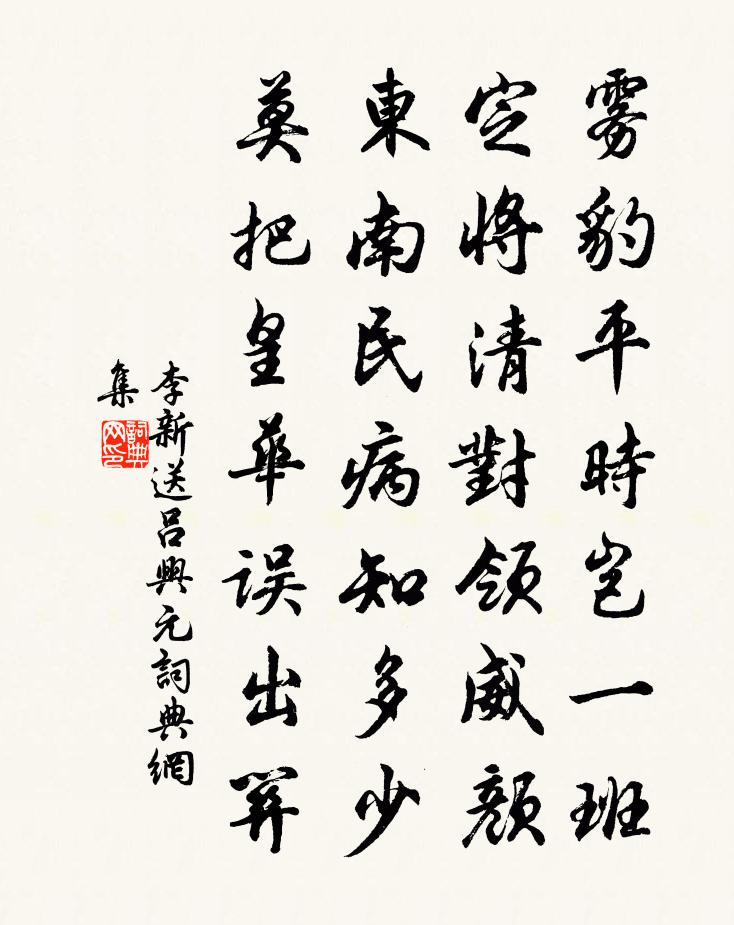 雾豹平時岂一班
定將清對領威顔
東南民病知多少
莫把皇華误出關
李新送呂興元詞典網
集
詞典
网印